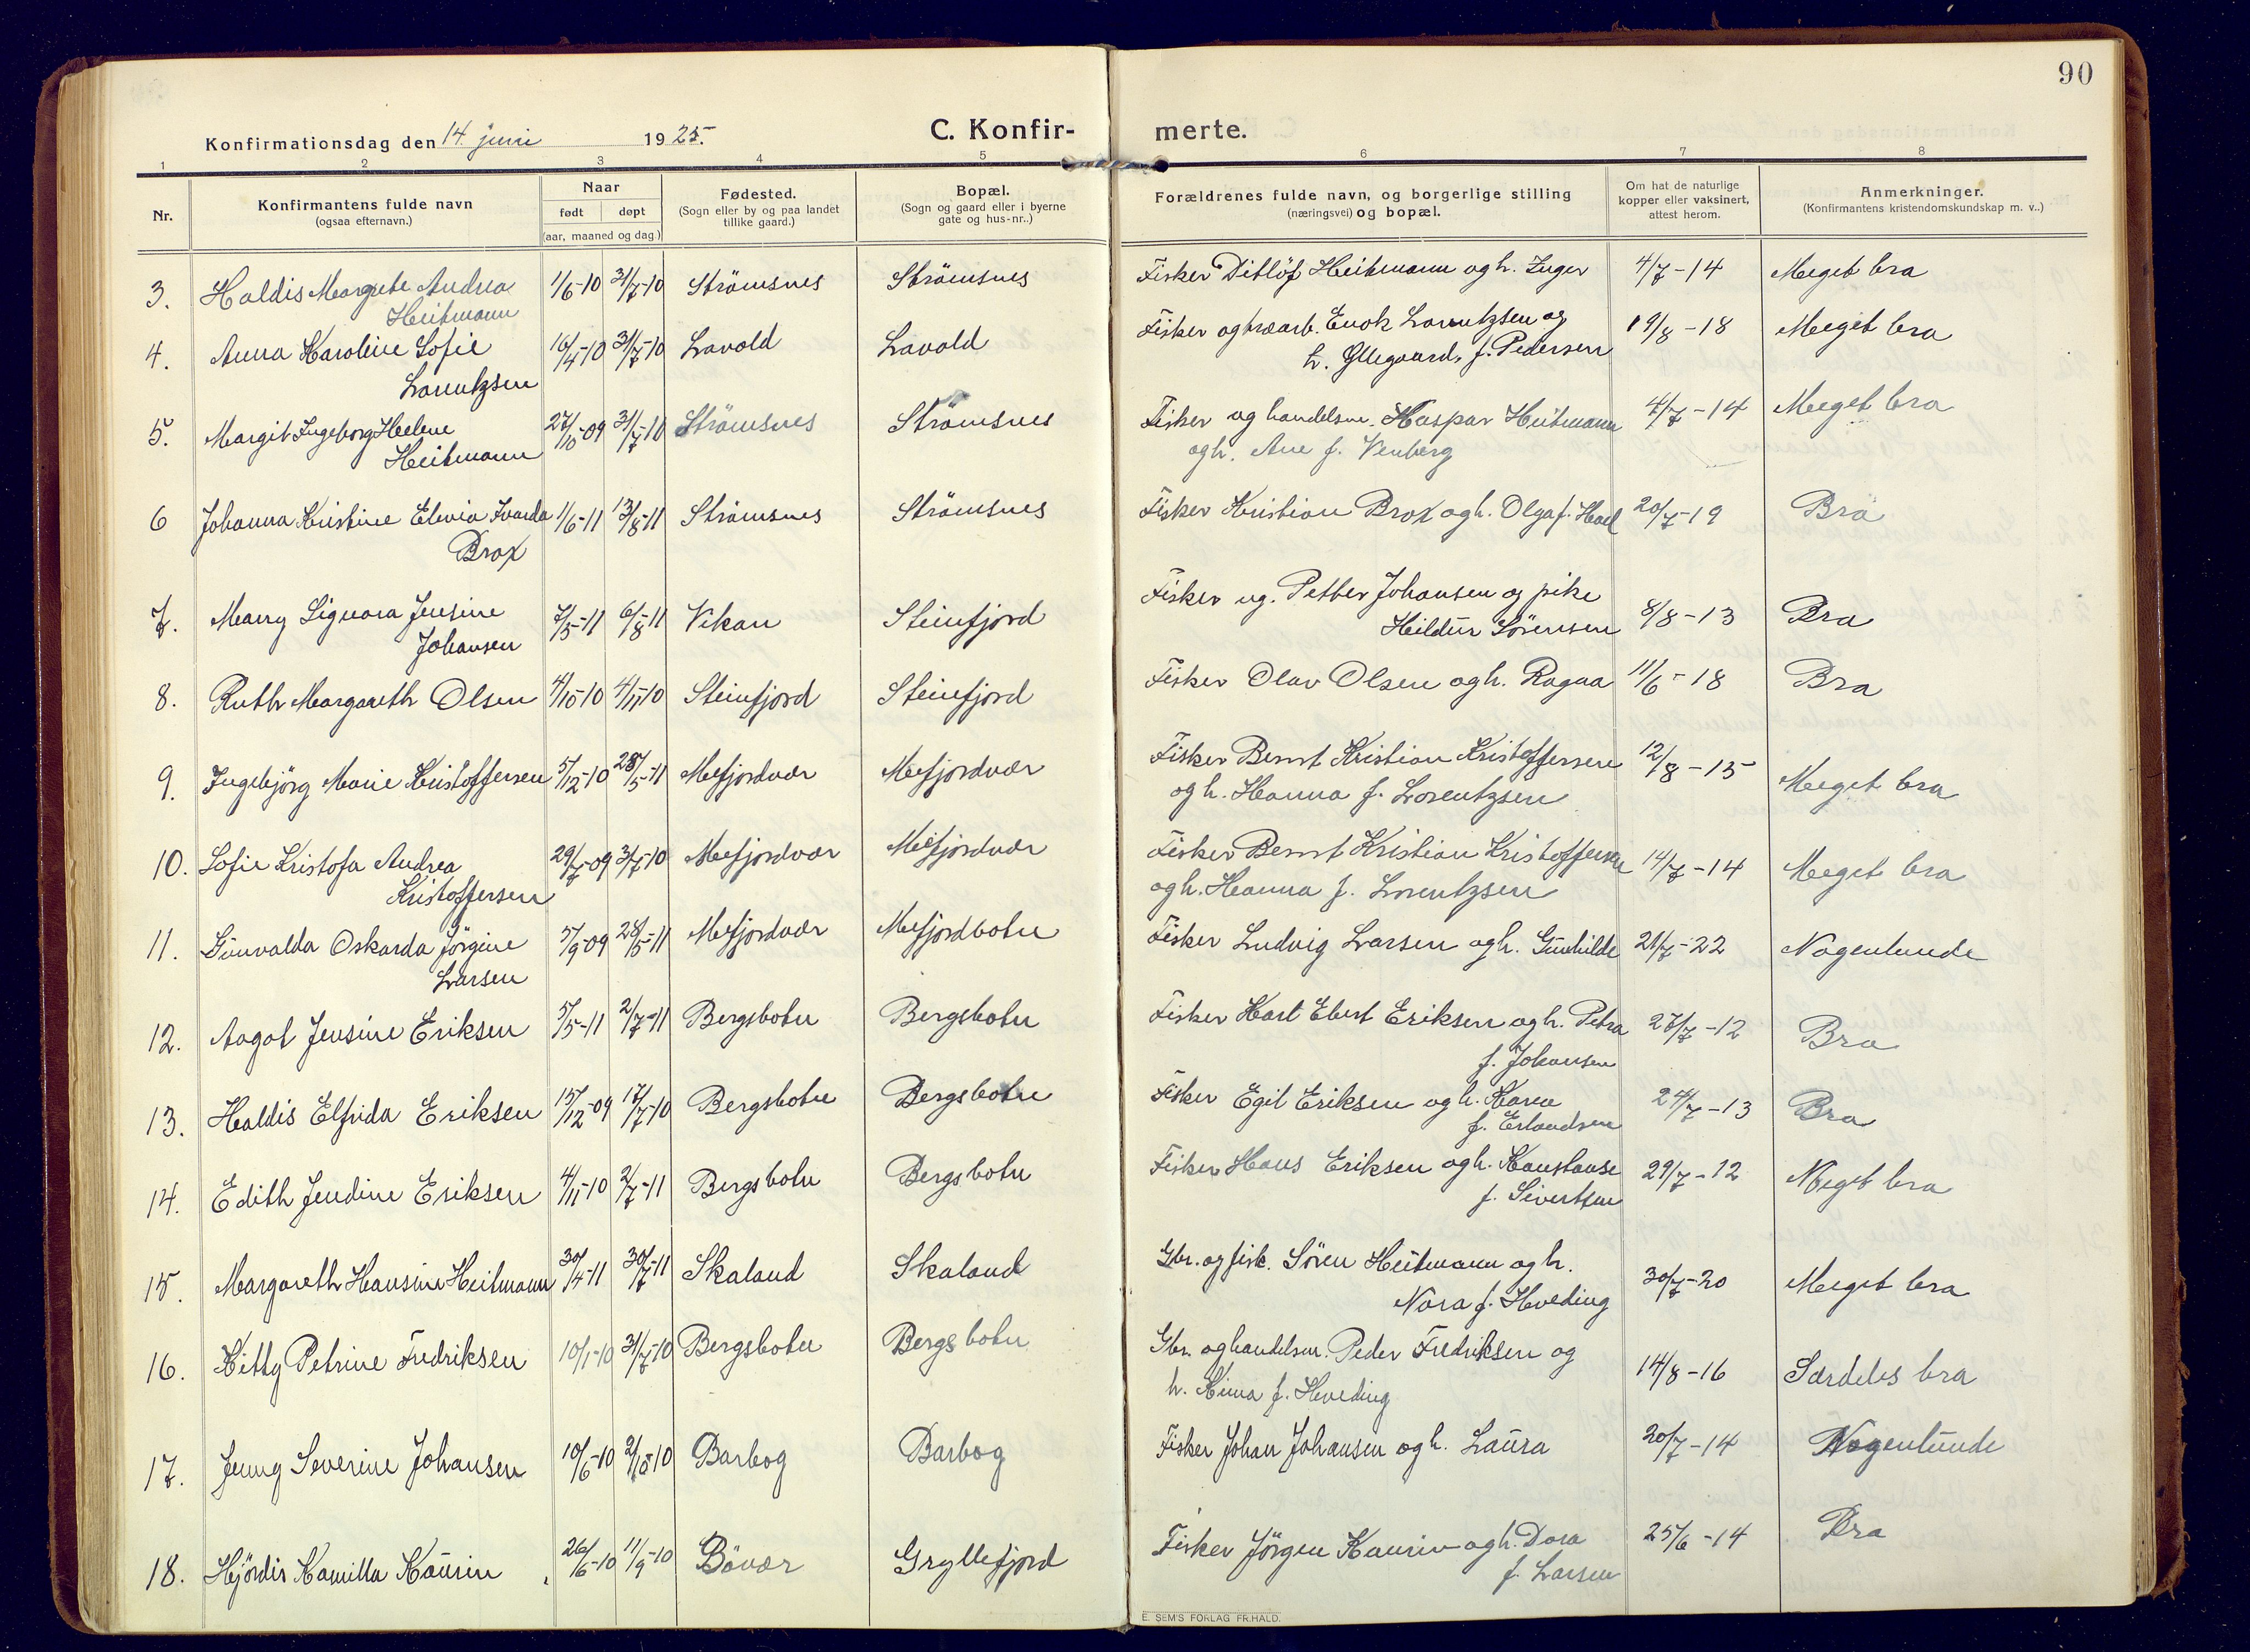 90
Konfirmationsdag den 14. juni 1925.
C. Konfir-
merte.
1 2 3 4 5 6 7 8
Nr.
Konfirmantens fulde navn
(ogsaa efternavn.)
Naar
født døpt
(aar, maaned og dag.)
Fødested.
(Sogn eller by og paa landet
tillike gaard.)
Bopæl.
(Sogn og gaard eller i byerne
gate og hus-nr..)
Forældrenes fulde navn, og borgerlige stilling
(næringsvei) og bopæl.
Om hat de naturlige
kopper eller vaksinert,
attest herom.
Anmerkninger.
(Konfirmantens kristendomskundskap m. v..)
3. Haldis Margrete Andrea 1/6-10 31/7-10 Strömsnes Strömsnes Fisker Ditlöf Heitmann og h. Inger 4/7-14 Meget bra
Heitmann
4. Anna Karoline Sofie 16/4-10 31/7-10 Lavold Lavold Fisker og træarb. Enok Lorentzsen og 19/8-18 Meget bra
Lorentzsen h. Yllegaard, f. Pedersen
5. Margit Ingeborg Helene 27/10-09 31/7-10 Strömsnes Strömsnes Fisker og handelsm. Kaspar Heitmann 4/7-14 Meget bra
Heitmann og h. Ane f. Venberg
6 Johanna Kristine Elevia Ivarda 1/6-11 13/8-11 Strömsnes Strömsnes Fisker Kristian Brox og h. Olga f. 20/7-19 Bra
Brox
7. Marry Signora Jensine 7/5-11 6/8-11 Vikan Steinfjord Fisker ug. Petter Johansen og pike 8/8-13 Bra
Johansen Heildur Sörensen
8. Ruth Margareth Olsen 4/10-10 4/11-10 Steinfjord Steinfjord Fisker Olav Olsen og h. Ragna 11/6-18 Bra
9. Ingebjörg Marie Kristoffersen 5/12-10 28/5-11 Mefjordvær Mefjordvær Fisker Bernt Kristian Kristoffersen 12/8-15 Meget bra
og h. Hanna f. Lorentzsen
10. Sofie Kristofa Andrea 29/7-09 3/7-10 Mefjordvær Mefjordvær Fisker Bernt Kristian Kristoffersen 14/7-14 Meget bra
Kristoffersen og h. Hanna f. Lorentzsen
11. Gunvalda Oskarda Jörgine 5/9-09 28/5-11 Mefjordvær Mefjordbotn Fisker Ludvig Larsen og h. Gunhilde 21/7-22 Nogenlunde
Larsen
12. Aagot Jensine Eriksen 5/5-11 2/7-11 Bergsbotn Bergsbotn Fisker Karl Ebert Eriksen og h. Petra 27/7-12 Bra
f. Johansen
13. Haldis Elfrida Eriksen 15/12-09 17/7-10 Bergsbotn Bergsbotn Fisker Egil Eriksen og h. Karen 24/7-13 Bra
f. Erlandsen
14. Edith Jendine Eriksen 4/11-10 2/7-11 Bergsbotn Bergsbotn Fisker Hans Eriksen og h. Konstanse 29/7-12 Meget bra
f. Sivertsen
15. Margareth Hansine Heitmann 30/4-11 30/7-11 Skaland Skaland Gbr. og fisk. Sören Heitmann og h. 30/7-20 Meget bra
Nora f. Hveding
16. Kitty Petrine Fredriksen 10/1-10 31/7-10 Bergsbotn Bergsbotn Gbr. og handelsm. Peder Fredriksen og 14/8-16 Særdeles bra
h. f. Hveding
17. Jenny Severine Johansen 10/6-10 2/10-10 Barbog Barbog Fisker Johan Johansen og h. Laura 20/7-14 Nogenlunde
18. Hjördis Kamilla Kaurin 26/6-10 11/9-10 Bövær Gryllefjord Fisker Jörgen Kaurin og h. Dora 25/6-14 Bra
f. Larsen
E. SEM'S FORLAG FR.HALD.